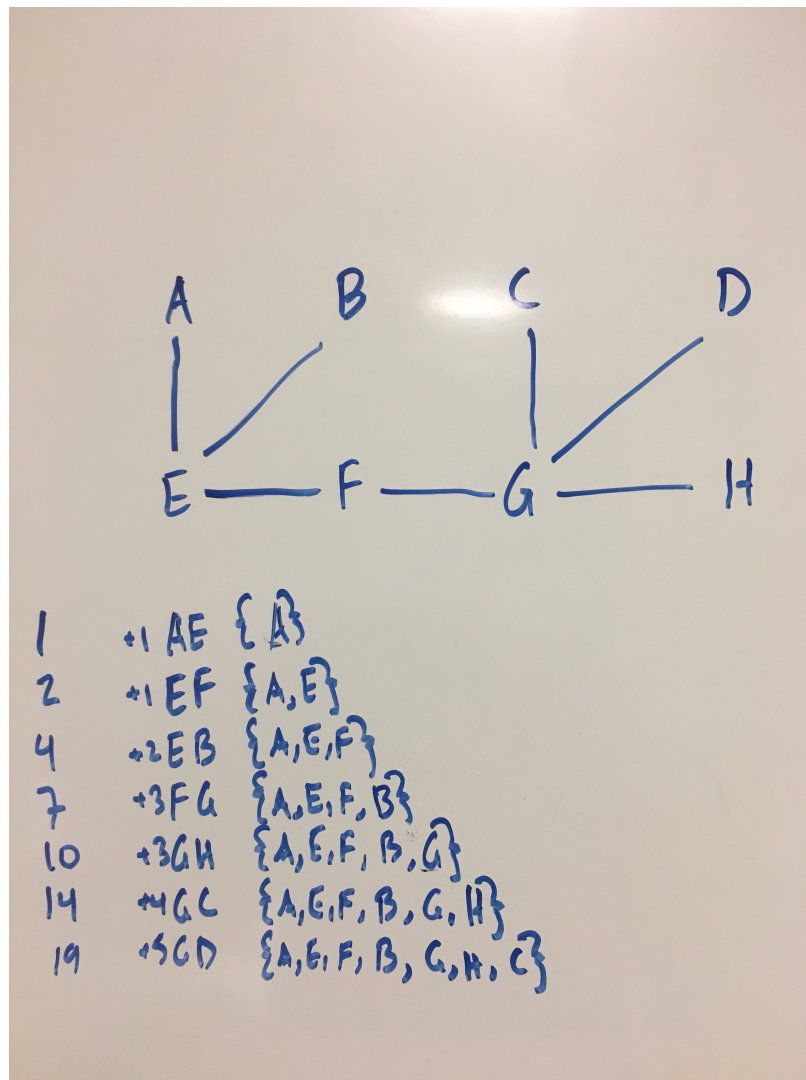 A B C D
E F G H
1 +1 AE {A}
2 +1 EF {A,E}
4 +2 EB {A,E,F}
7 +3 FG {A,E,F,B}
10 +3 GH {A,E,F,B,G}
14 +4 GC {A,E,F,B,G,H}
19 +5 GD {A,E,F,B,G,H,C}